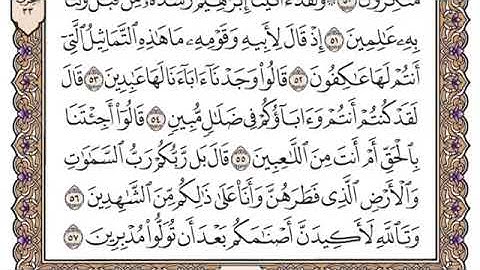 مُنكِرُونَ ٥٠ وَلَقَدْ ءَاتَيْنَآ إِبْرَٰهِيمَ رُشْدَهُۥ مِن قَبْلُ وَكُنَّا
بِهِۦ عَٰلِمِينَ ٥١ إِذْ قَالَ لِأَبِيهِ وَقَوْمِهِۦ مَا هَٰذِهِ ٱلتَّمَاثِيلُ ٱلَّتِىٓ
أَنتُمْ لَهَا عَٰكِفُونَ ٥٢ قَالُوا۟ وَجَدْنَآ ءَابَآءَنَا لَهَا عَٰبِدِينَ ٥٣ قَالَ
لَقَدْ كُنتُمْ أَنتُمْ وَءَابَآؤُكُمْ فِى ضَلَٰلٍ مُّبِينٍ ٥٤ قَالُوٓا۟ أَجِئْتَنَا
بِٱلْحَقِّ أَمْ أَنتَ مِنَ ٱللَّٰعِبِينَ ٥٥ قَالَ بَل رَّبُّكُمْ رَبُّ ٱلسَّمَٰوَٰتِ
وَٱلْأَرْضِ ٱلَّذِى فَطَرَهُنَّ وَأَنَا۠ عَلَىٰ ذَٰلِكُم مِّنَ ٱلشَّٰهِدِينَ ٥٦
وَتَٱللَّهِ لَأَكِيدَنَّ أَصْنَٰمَكُم بَعْدَ أَن تُوَلُّوا۟ مُدْبِرِينَ ٥٧